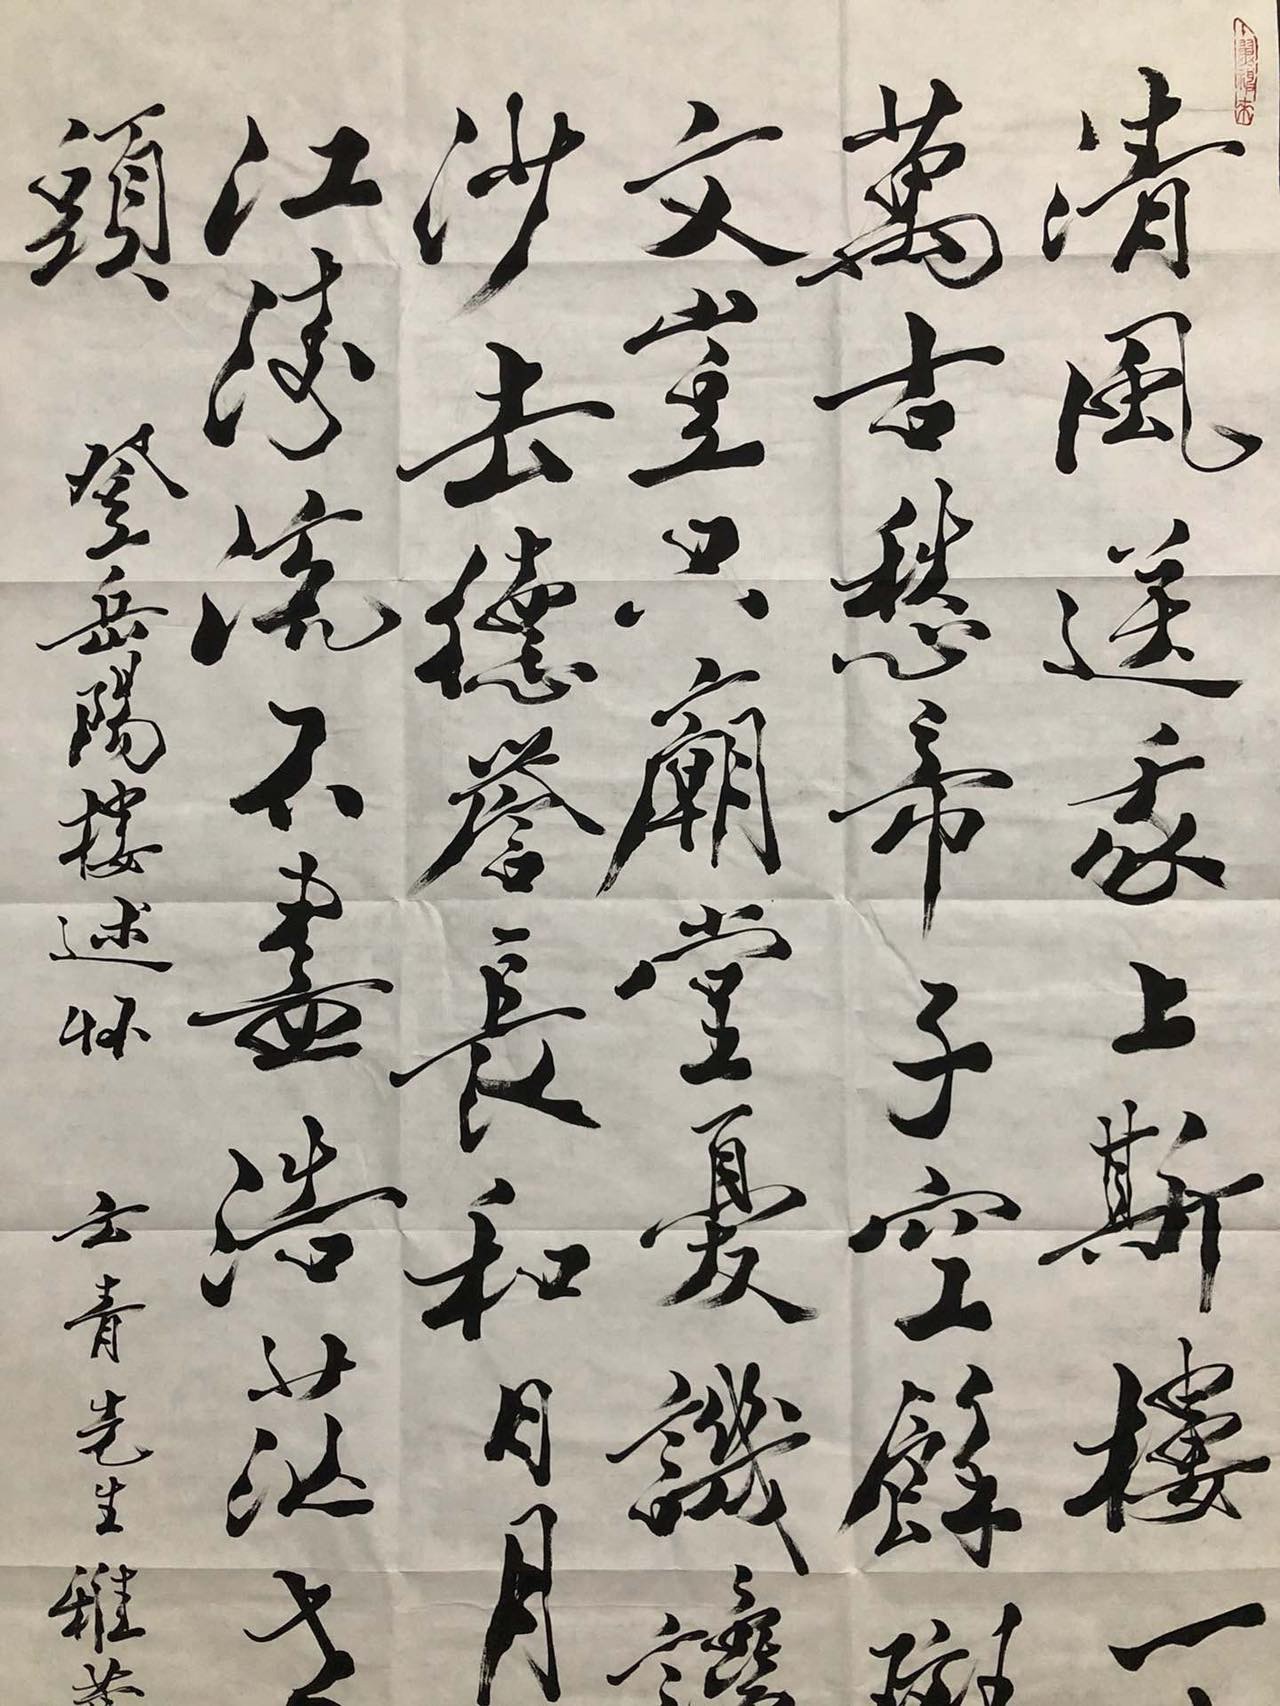 清風送我上斯樓一
萬古愁帝子空餘斑
文豈只廟堂憂譏讒
沙去德譽長和日月
江濤流不盡浩茫
頭 登岳陽樓述怀 云青先生雅